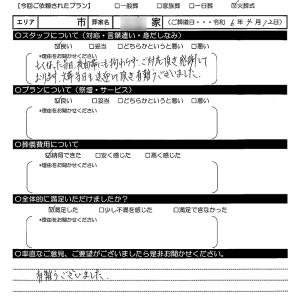 【今回ご依頼されたプラン】 □一般葬 □家族葬 □一日葬 ☑火葬式
エリア 市 葬家名 家 (ご葬儀日・令和 6年 4月 12日)
○スタッフについて(対応・言葉遣い・身だしなみ)
☑良い □妥当 □どちらかというと悪い □悪い
*理由をお聞かせください
有難うございました。
○プランについて(祭壇・サービス)
□良い □妥当 □どちらかというと悪い □悪い
*理由をお聞かせください
○葬儀費用について
☑納得できた □安く感じた □高く感じた
*理由をお聞かせください
○全体的に満足いただけましたか?
☑満足した □少し不満を感じた □満足できなかった
*理由をお聞かせください
○率直なご意見、ご要望がございましたら是非お聞かせください。
有難うございました。